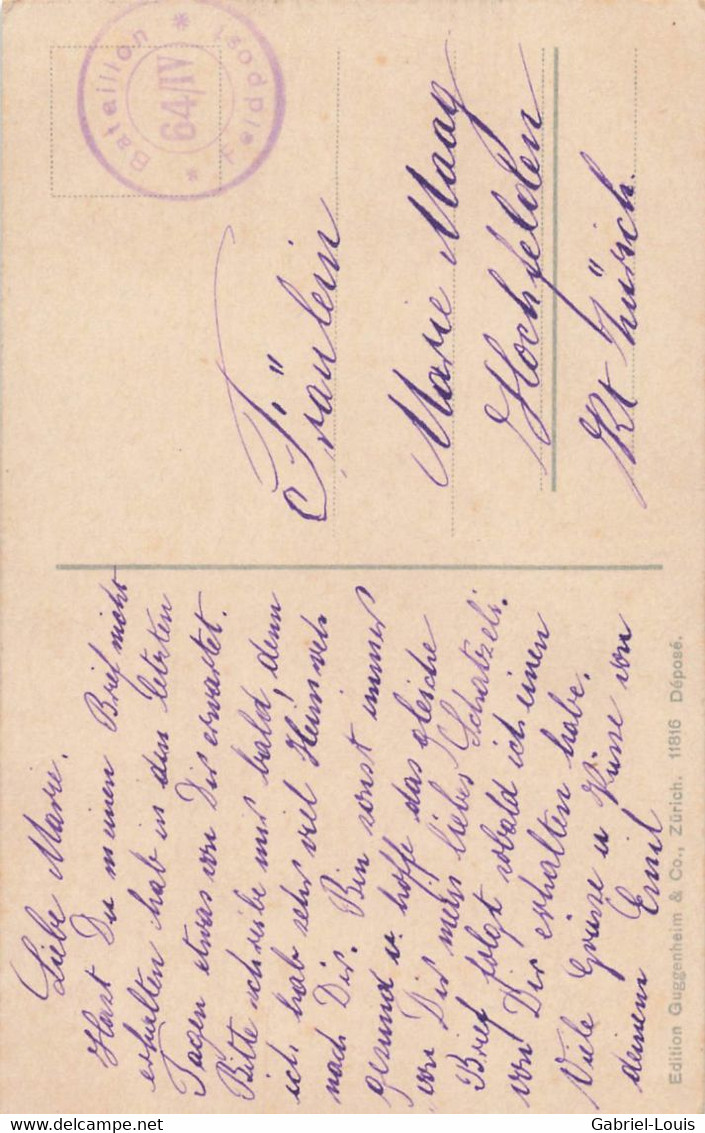 Bataillon
64/IV
Feldpost
Fräulein
Marie Maag
Hochfelden
Kt Zürich.
Liebe Marie.
Hast Du meinen Brief nicht
erhalten hab in den letzten
Tagen etwas von Dir erwartet.
Bitte schreibe mir bald, denn
ich hab sehr viel Heimweh
nach Dir. Bin sonst immer
gesund u. hoffe das gleiche
von Dir mein liebes Schatzeli.
Brief folgt sobald ich einen
von Dir erhalten habe.
Viele Grüsse u Küsse von
deinem Emil
Edition Guggenheim & Co., Zürich. 11816 Déposé.
Gabriel-Louis